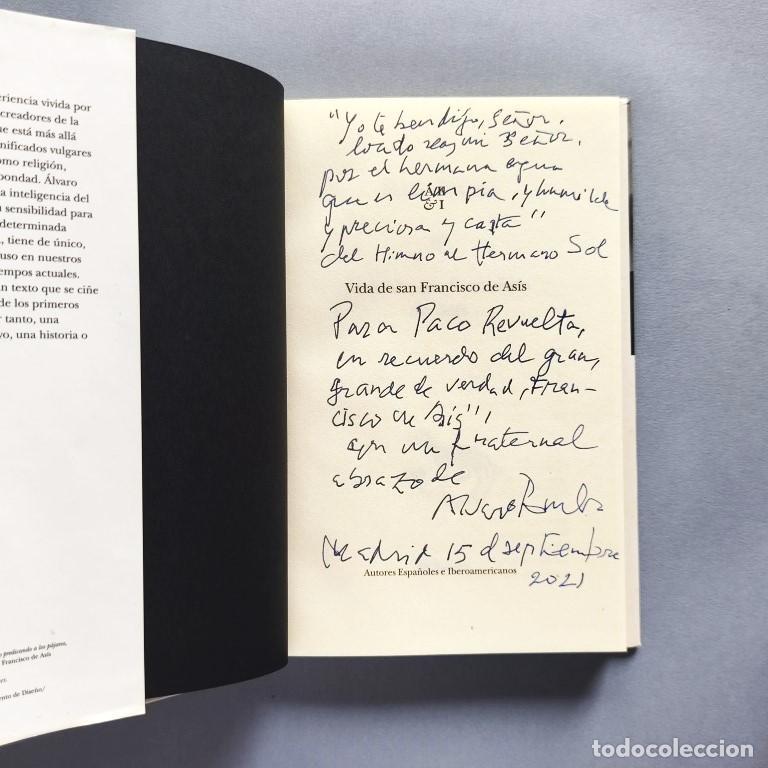 eriencia vivida por
creadores de la
ue está más allá
nificados vulgares
omo religión,
bondad. Álvaro
a inteligencia del
sensibilidad para
determinada
, tiene de único,
uso en nuestros
empos actuales.
n texto que se ciñe
de los primeros
r tanto, una
yo, una historia o
predicando a los pájaros,
Francisco de Asís
ento de Diseño/
"Yo te bendigo, Señor,
loado seas mi Señor,
por el hermana agua
que es limpia, y humilde
y preciosa y casta"
del Himno al Hermano Sol
A&I
Vida de san Francisco de Asís
Para Paco Revuelta,
en recuerdo del gran,
grande de verdad, Fran-
cisco de Asís,
con un fraternal
abrazo de
Alvaro Pombo
Madrid 15 d septiembre
2021
Autores Españoles e Iberoamericanos
todocoleccion